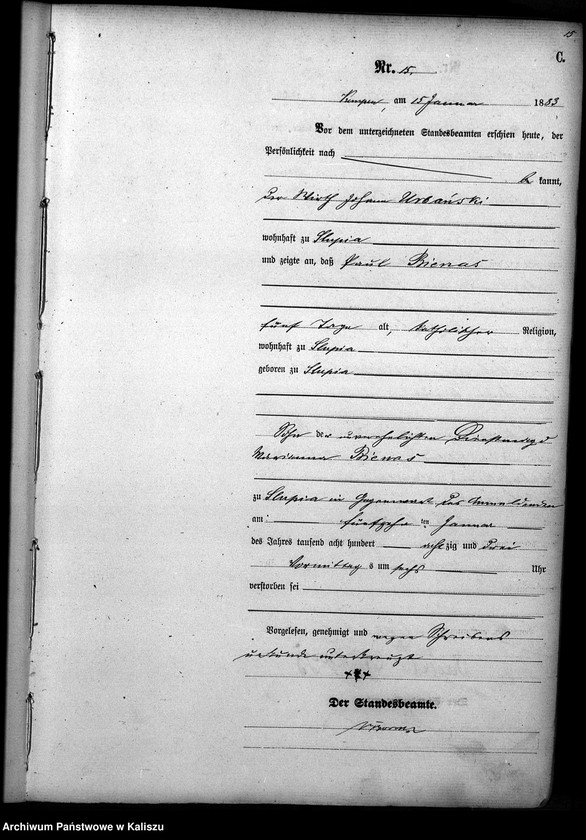 15.
C.
Nr. 15.
Kempen, am 15 Januar 1883
Vor dem unterzeichneten Standesbeamten erschien heute, der
Persönlichkeit nach
be kannt,
der Wirth Johann Urbański
wohnhaft zu Slupia
und zeigte an, daß Paul Bienas
fünf Tage alt, katholischer Religion,
wohnhaft zu Slupia
geboren zu Slupia
Sohn der unverehelichten Dienstmagd
Marianna Bienas
zu Slupia in Gegenwart des Anmeldenden
am fünfzehn ten Januar
des Jahres tausend acht hundert achtzig und drei
Vormittag s um sechs Uhr
verstorben sei
Vorgelesen, genehmigt und wegen Schreibens
unkunde unterkreuzt
+++
Der Standesbeamte.
Archiwum Państwowe w Kaliszu